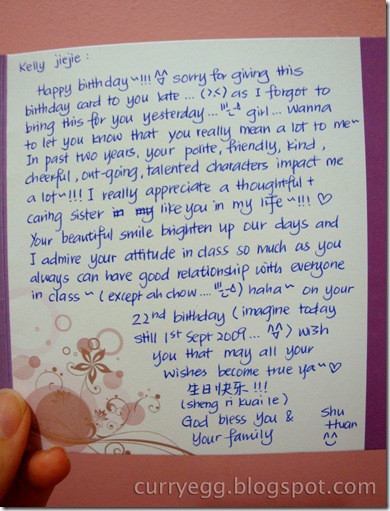 Kelly jiejie :
Happy birthday~!!! ^^ sorry for giving this
birthday card to you late... (>.<) as I forgot to
bring this for you yesterday... girl... wanna
to let you know that you really mean a lot to me~
In past two years, your polite, friendly, kind,
cheerful, out-going, talented characters impact me
a lot~!!! I really appreciate a thoughtful +
caring sister in my like you in my life~!!! ♡
Your beautiful smile brighten up our days and
I admire your attitude in class so much as you
always can have good relationship with everyone
in class~ (except ah chow.... ) haha~ on your
22nd birthday (imagine today
still 1st Sept 2009... ^^) wish
you that may all your
wishes become true ya~♡
生日快乐!!!
(sheng ri kuai le)
God bless you &
your family
Shu
Huan
^^
curryegg.blogspot.com